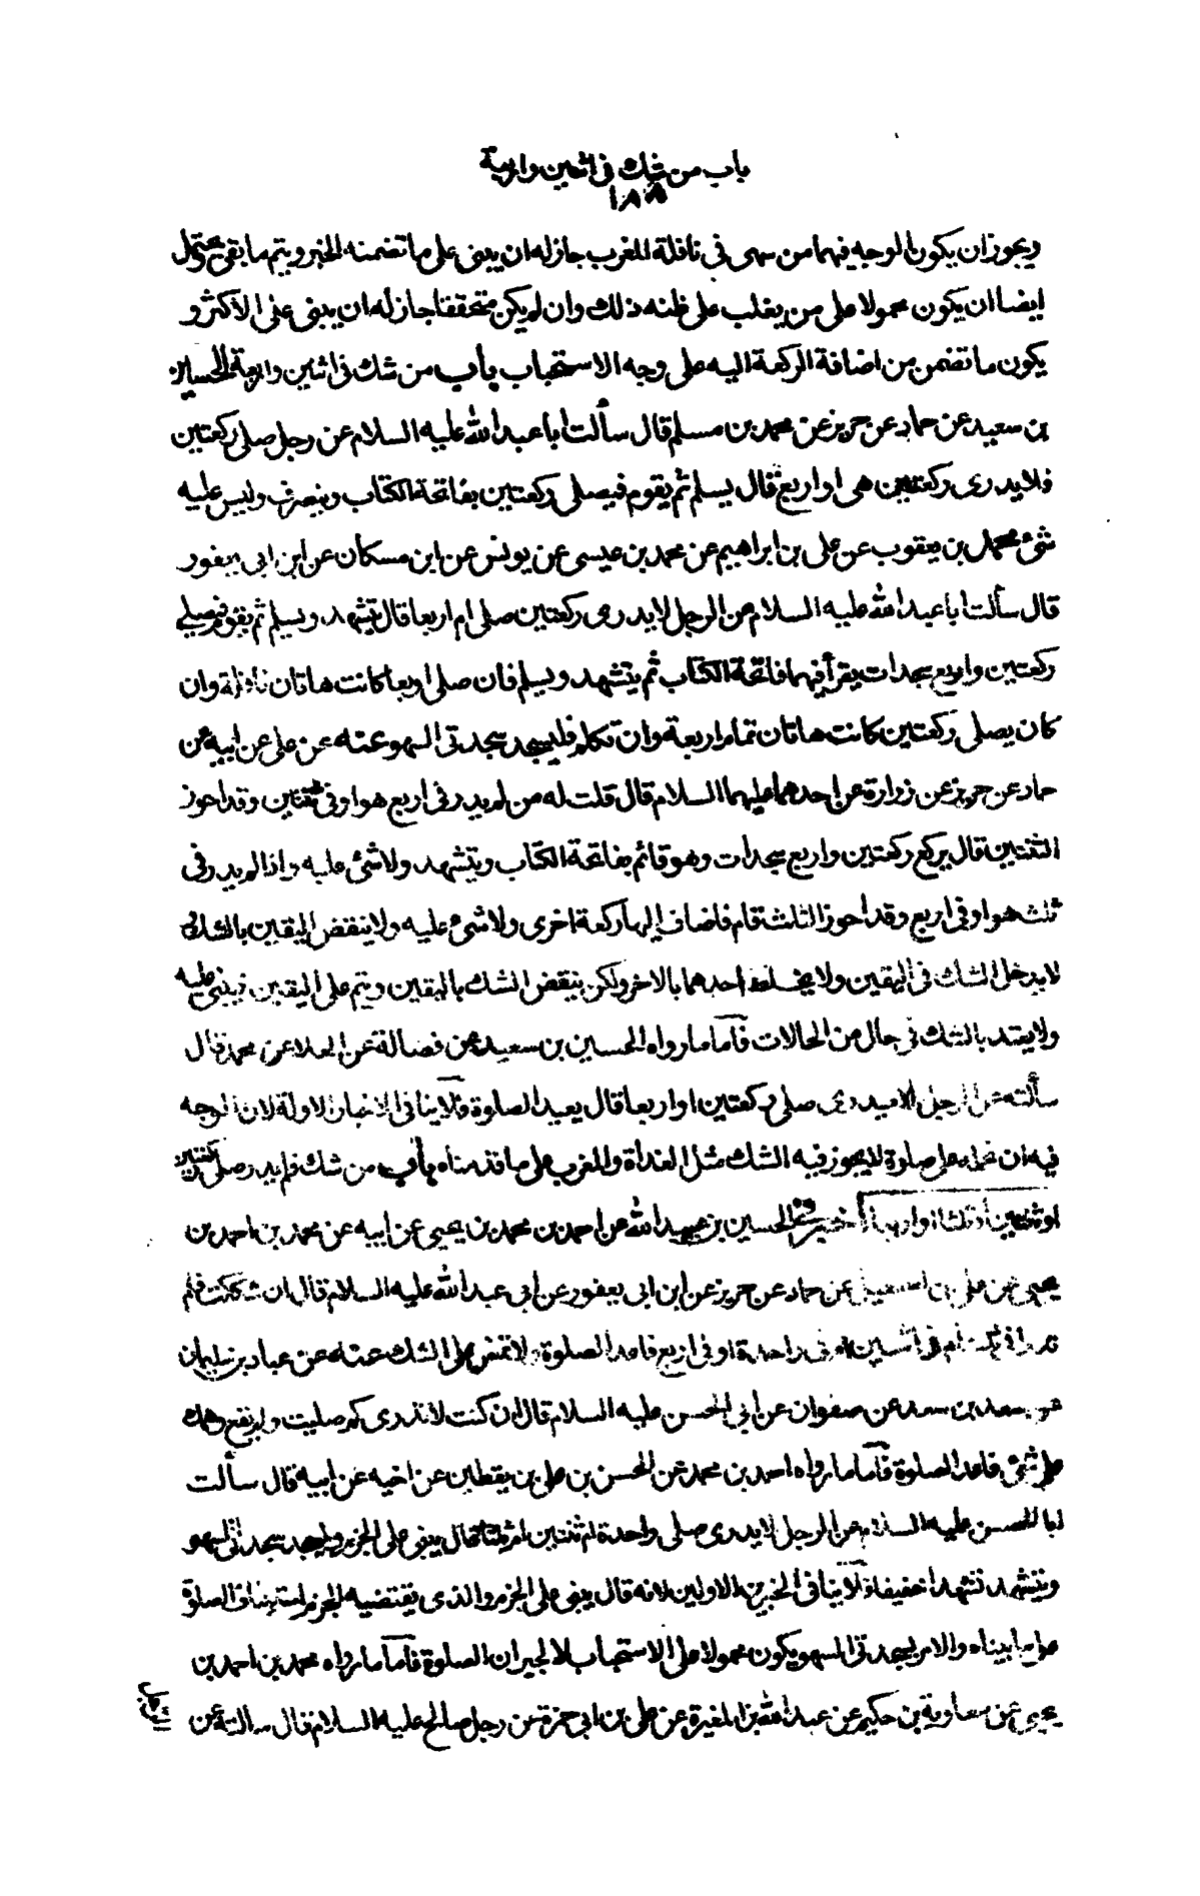 باب من شك في اثنين واربعة
١٨٨
ويجوز ان يكون الوجه فيهما من سهى في نافلة المغرب جاز له ان يبنى على ما تضمنه الخبر ويتم ما بقى ويحتمل
ايضا ان يكون محمولا على من يغلب على ظنه ذلك وان لم يكن متحققا جاز له ان يبنى على الاكثر و
يكون ما تضمن من اضافة الركعة اليه على وجه الاستحباب باب من شك في اثنين واربعة الحسين
بن سعيد عن حماد عن حريز عن محمد بن مسلم قال سألت ابا عبد الله عليه السلام عن رجل صلى ركعتين
فلا يدرى ركعتين هى او اربع قال يسلم ثم يقوم فيصلى ركعتين بفاتحة الكتاب وينصرف وليس عليه
شئ محمد بن يعقوب عن على بن ابراهيم عن محمد بن عيسى عن يونس عن ابن مسكان عن ابن ابى يعفور
قال سألت ابا عبد الله عليه السلام عن الرجل لا يدرى ركعتين صلى ام اربعا قال يتشهد ويسلم ثم يقوم فيصلى
ركعتين واربع سجدات يقرأ فيهما فاتحة الكتاب ثم يتشهد ويسلم فان صلى اربعا كانت هاتان نافلة وان
كان يصلى ركعتين كانت هاتان تمام اربعة وان تكلم فليسجد سجدتى السهو عنه عن على عن ابيه عن
حماد عن حريز عن زرارة عن احدهما عليهما السلام قال قلت له من لم يدر فى اربع هو او فى ثنتين وقد احرز
الثنتين قال يركع ركعتين واربع سجدات وهو قائم بفاتحة الكتاب ويتشهد ولا شئ عليه واذا لم يدر فى
ثلث هو او فى اربع وقد احرز الثلث قام فاضاف اليها ركعة اخرى ولا شئ عليه ولا ينقض اليقين بالشك
لا يدخل الشك فى اليقين ولا يخلط احدهما بالاخر ولكن ينقض الشك باليقين ويتم على اليقين فيبنى عليه
ولا يعتد بالشك فى حال من الحالات فاما ما رواه الحسين بن سعيد عن فضالة عن العلا عن محمد قال
سألته عن الرجل لا يدرى صلى ركعتين او اربعا قال يعيد الصلوة فلا ينافى الاخبار الاولة لان الوجه
فيه ان نحمله على صلوة لا يجوز فيه الشك مثل الغداة والمغرب على ما قدمناه باب من شك فلم يدر صلى ركعة
او ثنتين او ثلثا او اربعا اخبرنى الحسين بن عبيد الله عن احمد بن محمد بن يحيى عن ابيه عن محمد بن احمد بن
يحيى عن على بن اسمعيل عن حماد عن حريز عن ابن ابى يعفور عن ابى عبد الله عليه السلام قال ان شككت فلم
تدر افى ثلث ام فى اثنين ام فى واحدة او فى اربع فاعد الصلوة ولا تمض على الشك عنه عن عباد بن سليمان
عن سعد بن سعد عن صفوان عن ابى الحسن عليه السلام قال ان كنت لا تدرى كم صليت ولم يقع وهمك
على شئ فاعد الصلوة فاما ما رواه احمد بن محمد عن الحسن بن على بن يقطين عن اخيه عن ابيه قال سألت
ابا الحسن عليه السلام عن الرجل لا يدرى صلى واحدة ام ثنتين ام ثلثا قال يبنى على الجزم ويسجد سجدتى السهو
ويتشهد تشهدا خفيفا فلا ينافى الخبرين الاولين لانه قال يبنى على الجزم والذى يقتضيه الجزم استيناف الصلوة
على ما بيناه والامر بسجدتى السهو يكون محمولا على الاستحباب لا لجبران الصلوة فاما ما رواه محمد بن احمد بن
يحيى عن معاوية بن حكيم عن عبد الله بن المغيرة عن على بن ابى حمزة عن رجل صالح عليه السلام قال سألته عن